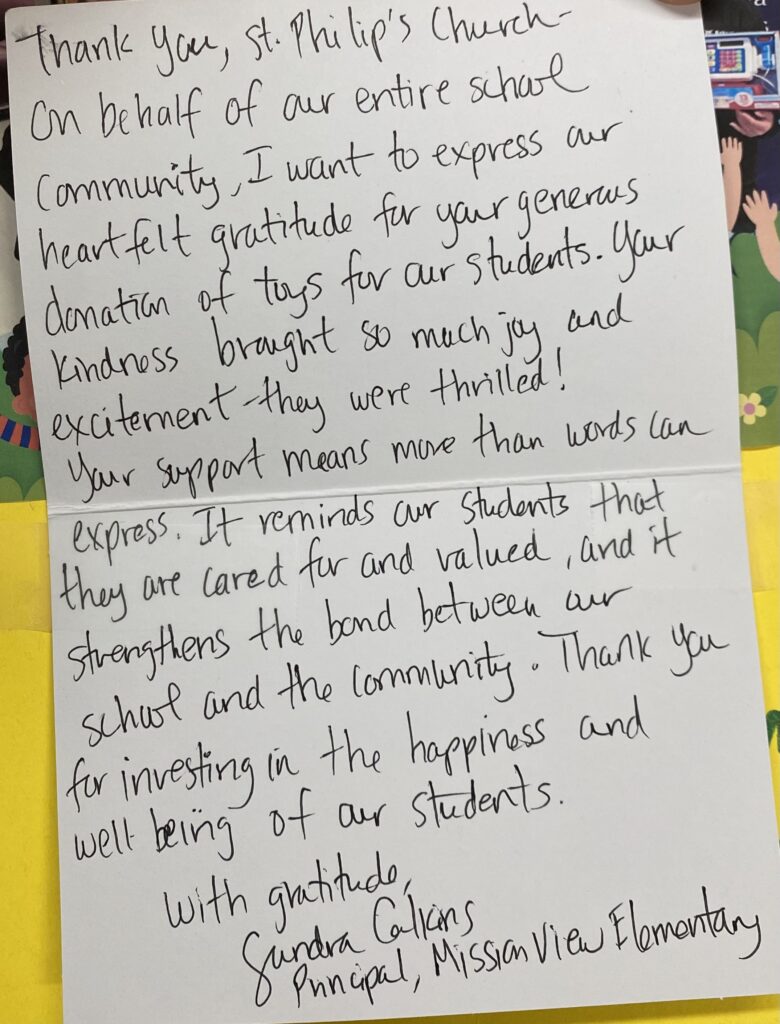 Thank you, St. Philip's Church-
On behalf of our entire school
community, I want to express our
heartfelt gratitude for your generous
donation of toys for our students. Your
kindness brought so much joy and
excitement-they were thrilled!
Your support means more than words can
express. It reminds our students that
they are cared for and valued, and it
strengthens the bond between our
school and the community. Thank you
for investing in the happiness and
well-being of our students.
With gratitude,
Sandra Calkins
Principal, Mission View Elementary